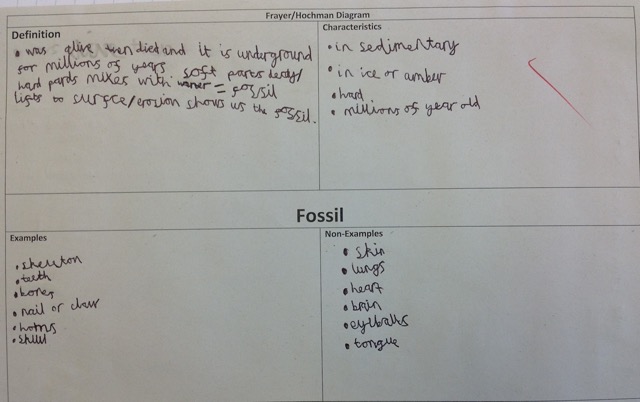 Frayer/Hochman Diagram
Definition
• was alive then died and it is underground
for millions of years soft parts decay/
hard pards mixes with = fossil
lifts to surfce/erosion shows us the fossil.
Characteristics
• in sedimentary
• in ice or amber
• hard
• millions of year old
Fossil
Examples
• skeleton
• teeth
• bones
• nail or claw
• horns
• skull
Non-Examples
• skin
• lungs
• heart
• brain
• eyeballs
• tongue